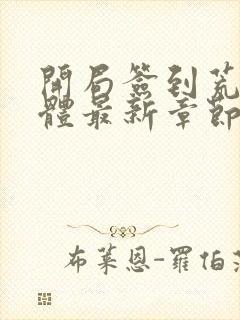 開局簽到荒
體最新章節
布萊恩-羅伯